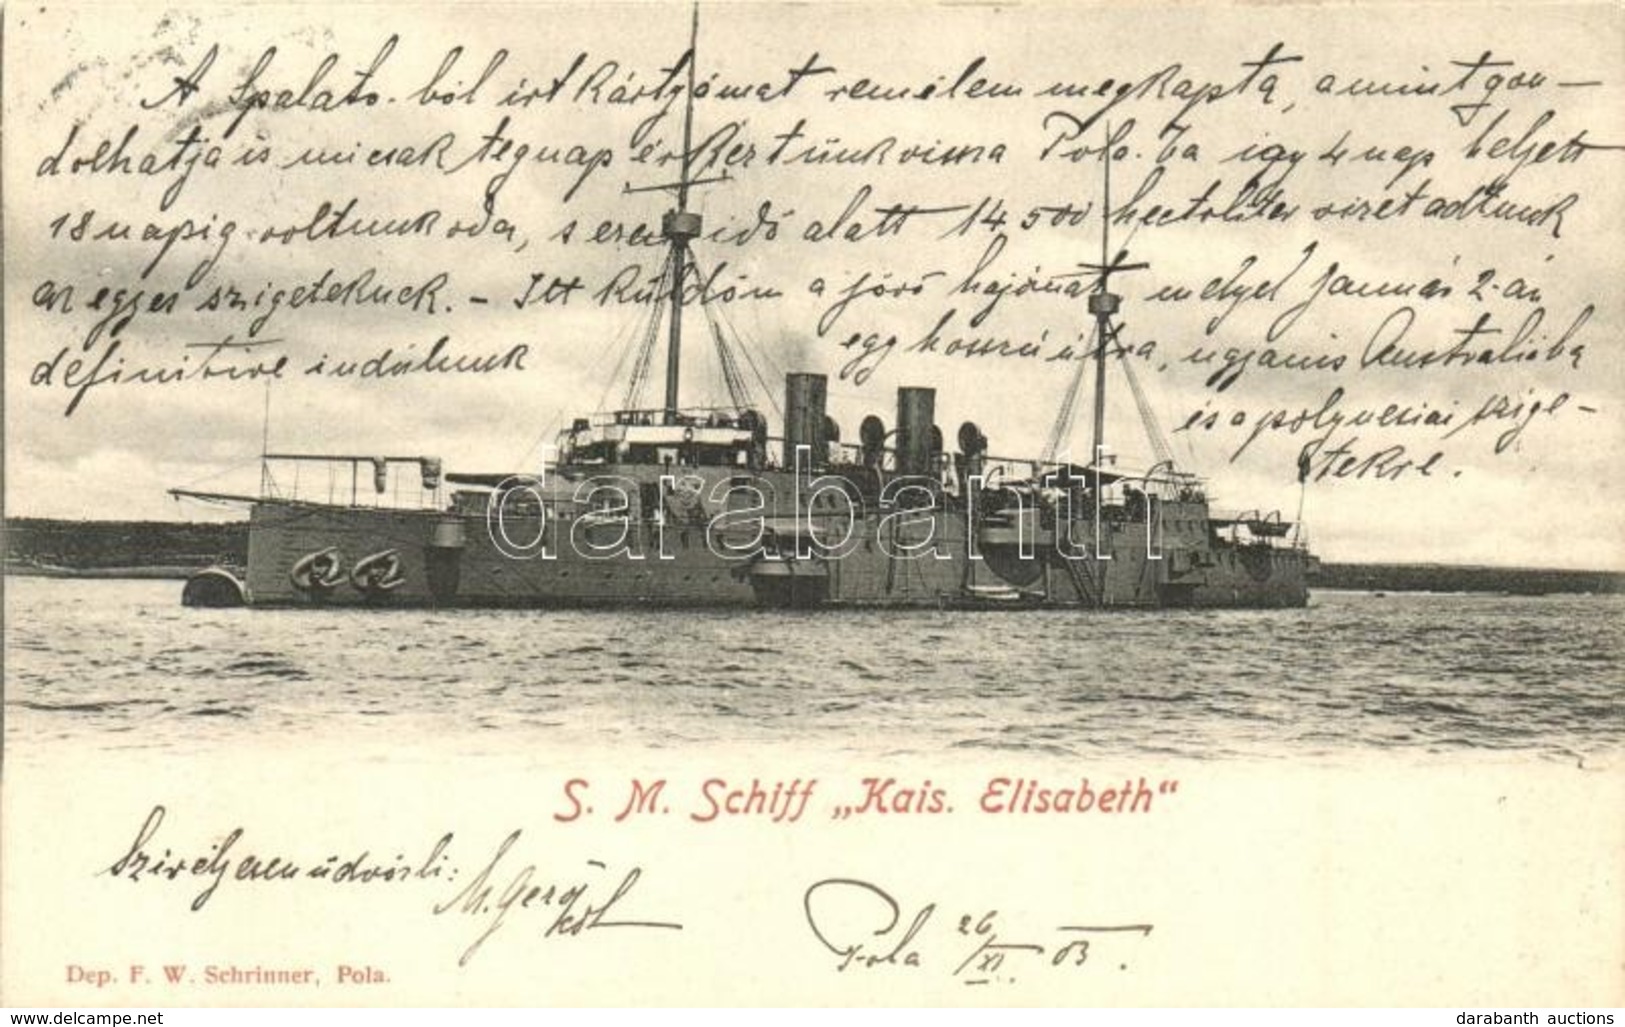 A Spalato-ból írt kártyámat remélem megkapta, amint gon-
dolhatja is mi csak tegnap érkeztünk vissza Pola-ba így 4 nap helyett
18 napig voltunk oda, s ezen idő alatt 14,500 hectoliter vizet adtunk
az egyes szigeteknek. - Itt küldöm a jövő hajómat, melyel Január 2-án
definitive indúlunk egy hosszú útra, ugyanis Australiába
és a polynesiai szige-
tekre.
darabanth
S. M. Schiff „Kais. Elisabeth“
Szivélyesen üdvözli:
M. Gerő
Pola 26/XI. 03.
Dep. F. W. Schrinner, Pola.
www.delcampe.net
darabanth auctions